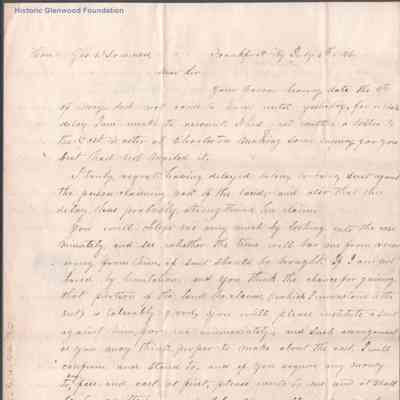 Historic Glenwood Foundation
Hon Geo W Summers Frankfort Ky July
Dear Sir
Your favor bearing date the
of May did not come to hand until yesterday, for which
delay I am unable to account. I had just written a letter to
the Post Master at Charleston making some inquiry for you
but had not mailed it.
I truly regret having delayed so long to bring suit against
the person claiming part of the land, and also that this
delay has probably strengthened his claim.
You would oblige me very much by looking into the case
minutely and see whether the time will bar me from recov
ering from him, if suit should be brought. If I am not
barred by limitation, and you think the chance for gaining
that portion of the land he claims (which I understand is the
best) is tolerably good, you will please institute a suit
against him for me immediately, and such arrangement
as you may think proper to make about the cost, I will
confirm and stand to, and if you require any money
fees and cost at first, please write to me and it shall